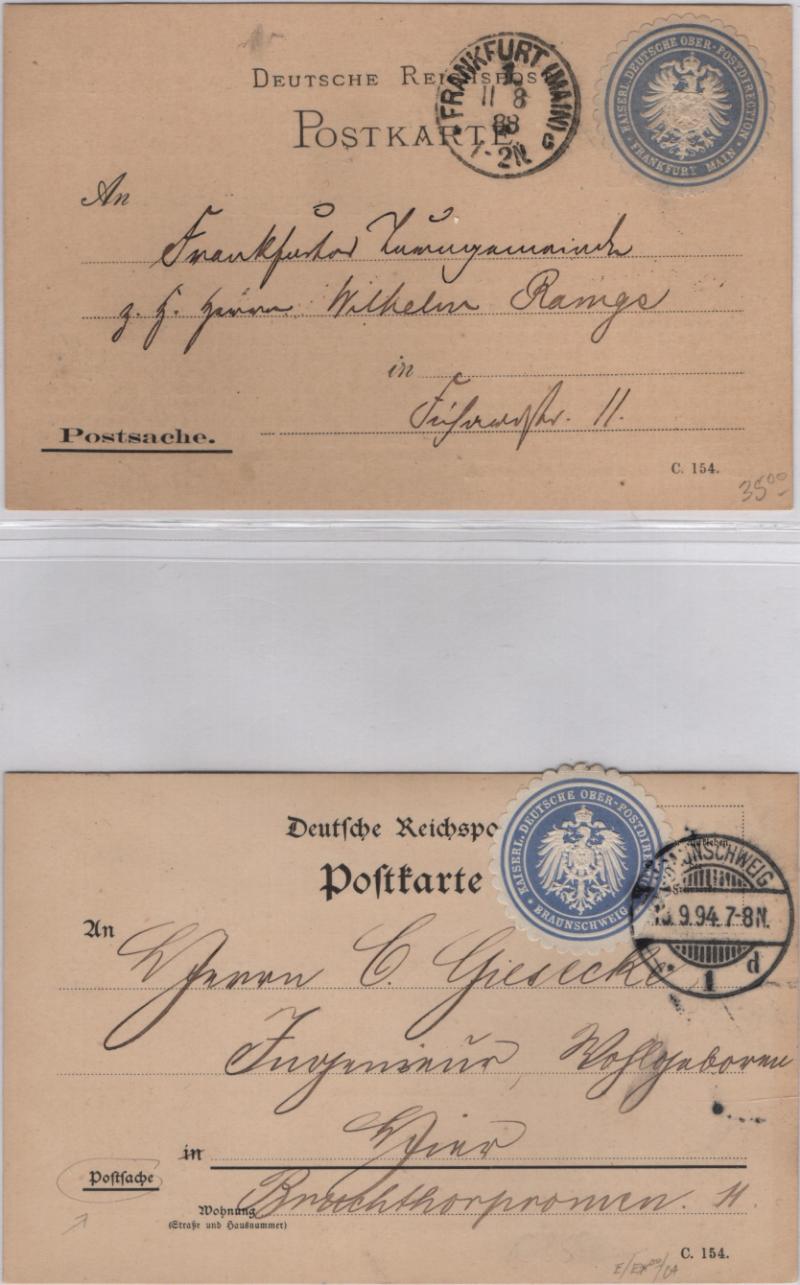 DEUTSCHE REICHSPOST
POSTKARTE
FRANKFURT (MAIN)
1
11 8
88
1-2N.
G
KAISERL. DEUTSCHE OBER-POSTDIRECTION
FRANKFURT MAIN
An
Frankfurter Turngemeinde
z. H. Herrn Wilhelm
in
11.
Postsache.
C. 154.
35⁰⁰
Deutsche Reichspo
Postkarte
KAISERL. DEUTSCHE OBER-POSTDIRE
BRAUNSCHWEIG
BRAUNSCHWEIG
9.94. 7-8N.
1 d
An
Herrn C. Giesecke
Ingenieur, Wohlgeboren
in Hier
Postsache
Wohnung Bruchthorpromen. 11.
(Straße und Hausnummer)
C. 154.